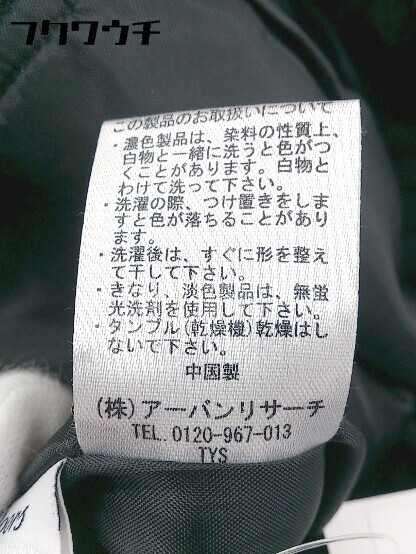 フクウウチ
この製品のお取扱いについて
・濃色製品は、染料の性質上、
白物と一緒に洗うと色がつ
くことがあります。白物と
わけて洗って下さい。
・洗濯の際、つけ置きをしま
すと色が落ちることがあり
ます。
・洗濯後は、すぐに形を整え
て干して下さい。
・きなり、淡色製品は、無蛍
光洗剤を使用して下さい。
・タンブル(乾燥機)乾燥はし
ないで下さい。
中国製
(株)アーバンリサーチ
TEL. 0120-967-013
TYS